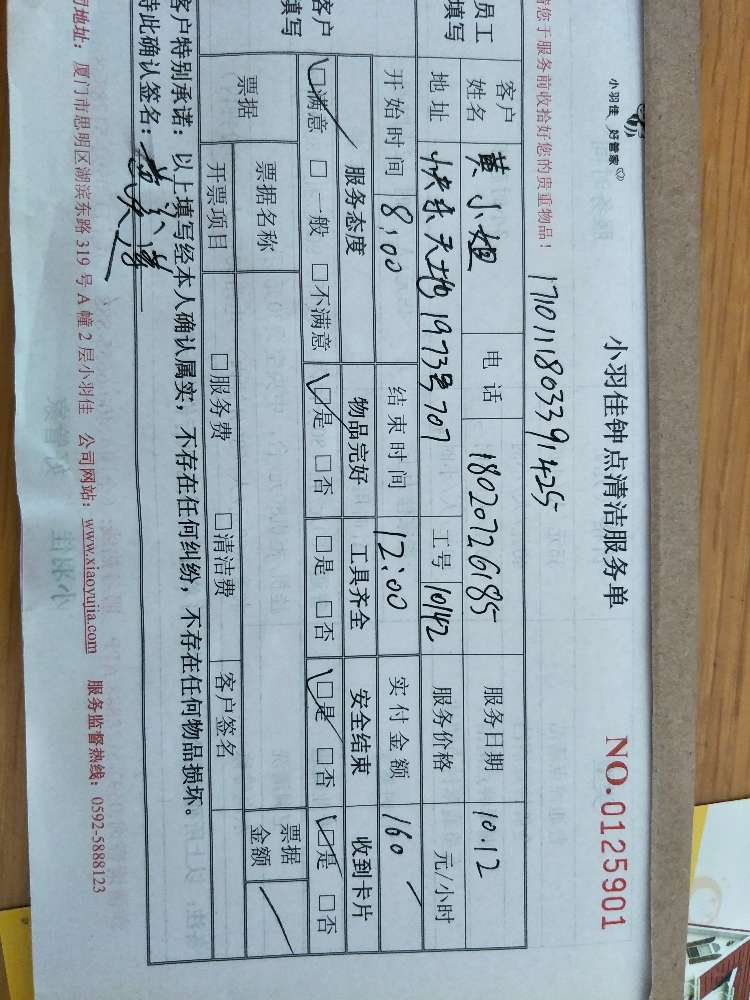 小羽佳 好管家
小羽佳钟点清洁服务单
NO.0125901
1710111803391425
您于服务前收拾好您的贵重物品!
员工填写
客户姓名 黄小姐 电话 18020726185 服务日期 10.12
地址 快乐天地1973号707 工号 10142 服务价格 元/小时
开始时间 8:00 结束时间 12:00 实付金额 160
客户填写
服务态度 物品完好 工具齐全 安全结束 收到卡片
□满意 □一般 □不满意 □是 □否 □是 □否 □是 □否 □是 □否
票据 票据名称 票据金额
开票项目 □服务费 □清洁费 客户签名
客户特别承诺:以上填写经本人确认属实,不存在任何纠纷,不存在任何物品损坏。
特此确认签名:
司地址:厦门市思明区湖滨东路 319 号 A 幢 2 层小羽佳 公司网站:www.xiaoyujia.com 服务监督热线:0592-5888123